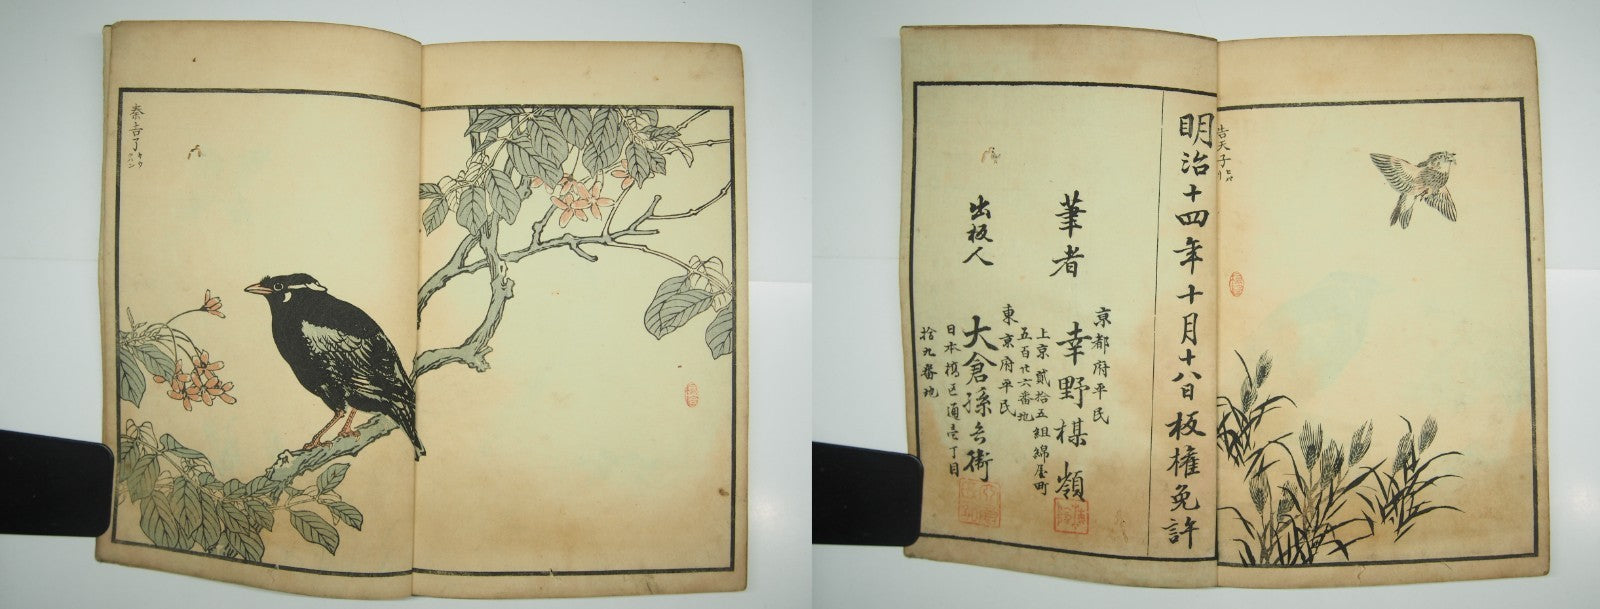 秦吉了
キウ
クハン
告天子
ヒバ
リ
明治十四年十月十八日板権免許
筆者
京都府平民
上京貳拾五組綿屋町
五百廿六番地
幸野楳嶺
出板人
東京府平民
日本橋区通壱丁目
拾九番地
大倉孫兵衛